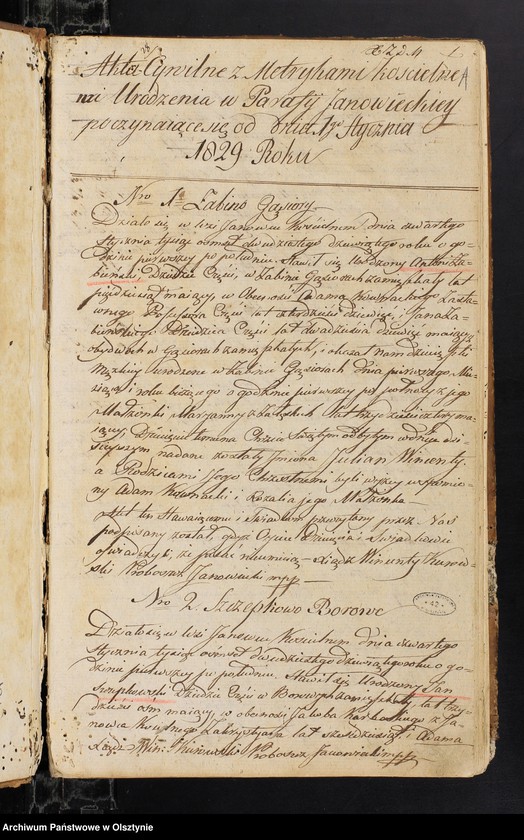 Akta Cywilne z Metrykami Kościelne
mi Urodzenia w Parafij Janowieckiey
poczynaiące się od dnia 1go Stycznia
1829 Roku
Nro 1. Żabino Gąsiory
Działo się w wsi Janowu Kościelnem dnia czwartego
Stycznia tysiąc ośmset dwudziestego dziewiątego roku o go-
dzinie pierwszy po południu Stawił się Urodzony Antoni Ża-
biński, Dziedzic Części, w Żabinie Gąsiorach zamieszkały lat
pięćdziesiąt maiący, w Obecności Adama
lat dziewięć, i Jana Ża-
bińskiego Dziedzica Części lat dwadzieścia dziewięć maiący
obydwóch w Gąsiorach zamieszkałych, i okazał nam dziecię płci
Męzkiey urodzone w Żabinie Gąsiorach dnia pierwszego Mie-
siąca i roku bieżącego o godzinie pierwszy po północy z jego
Małżonki Maryanny z lat trzydzieści cztery ma-
iącey, Dziecięciu temu na Chrzcie Świętym odbytym w dniu dzi-
sieyszym nadane zostały Imiona Julian Wincenty,
a Rodzicami Jego Chrzestnemi byli wyżey wspomnio-
ny Adam i Rozalia jego Małżonka
Akt ten Stawaiącemu i Świadkom przeczytany przez Nas
podpisany został, gdyż Oyciec Dziecięcia i Świadkowie
oświadczyli, że pisać nieumieią – Xiądz Wincenty Kunow-
ski Proboszcz Janowiecki mpp
Nro 2. Szczepkowo Borowe
Działo się w wsi Janowu Kościelnem dnia czwartego
Stycznia tysiąc ośmset dwudziestego dziewiątego roku o go-
dzinie pierwszy po południu. Stawił się Urodzony Jan
Szczepkowski Dziedzic Części w Borowem zamieszkały lat trzy-
dzieści ośm maiący w obecności Jakoba z Ja-
nowa Kościelnego Zakrystyana lat sześćdziesiąt i Adama
Xiądz Win: Kunowski Proboszcz Janowiecki mpp
Archiwum Państwowe w Olsztynie